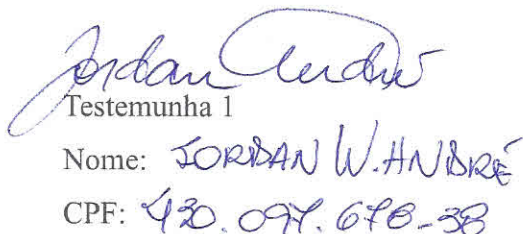 Jordan André
Testemunha 1
Nome: JORDAN W. ANDRÉ
CPF: 430.097.678-38